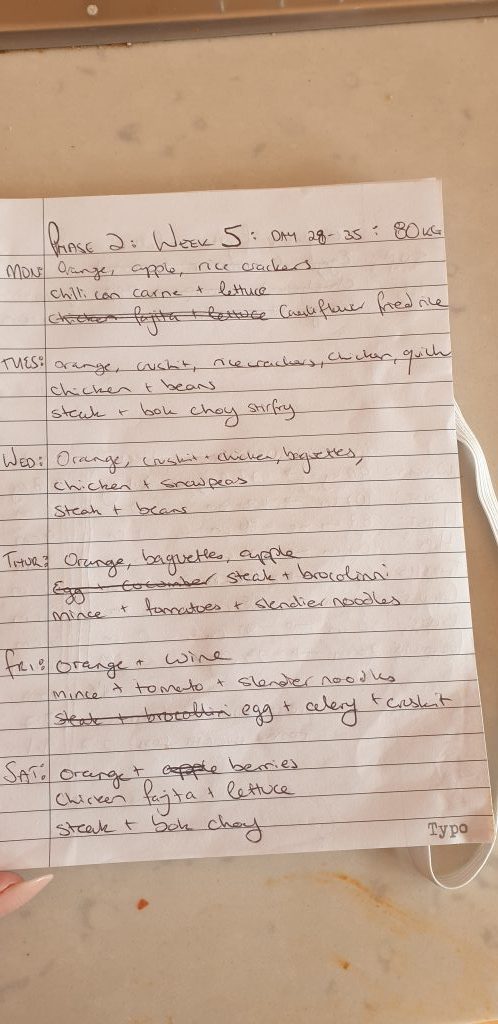 PHASE 2: WEEK 5: DAY 28-35: 80KG
MON: Orange, apple, rice crackers
chilli con carne + lettuce
chicken fajita + lettuce Cauliflower fried rice
TUES: orange, cruskit, rice crackers, chicken, quich
chicken + beans
steak + bok choy stirfry
WED: Orange, cruskit + chicken, baguettes,
chicken + snowpeas
steak + beans
THUR: Orange, baguettes, apple
Egg + cocomber steak + brocolinni
mince + tomatoes + slendier noodles
FRI: orange + wine
mince + tomato + slendier noodles
steak + brocollini egg + celery + cruskit
SAT: orange + apple berries
chicken fajita + lettuce
steak + bok choy
Typo